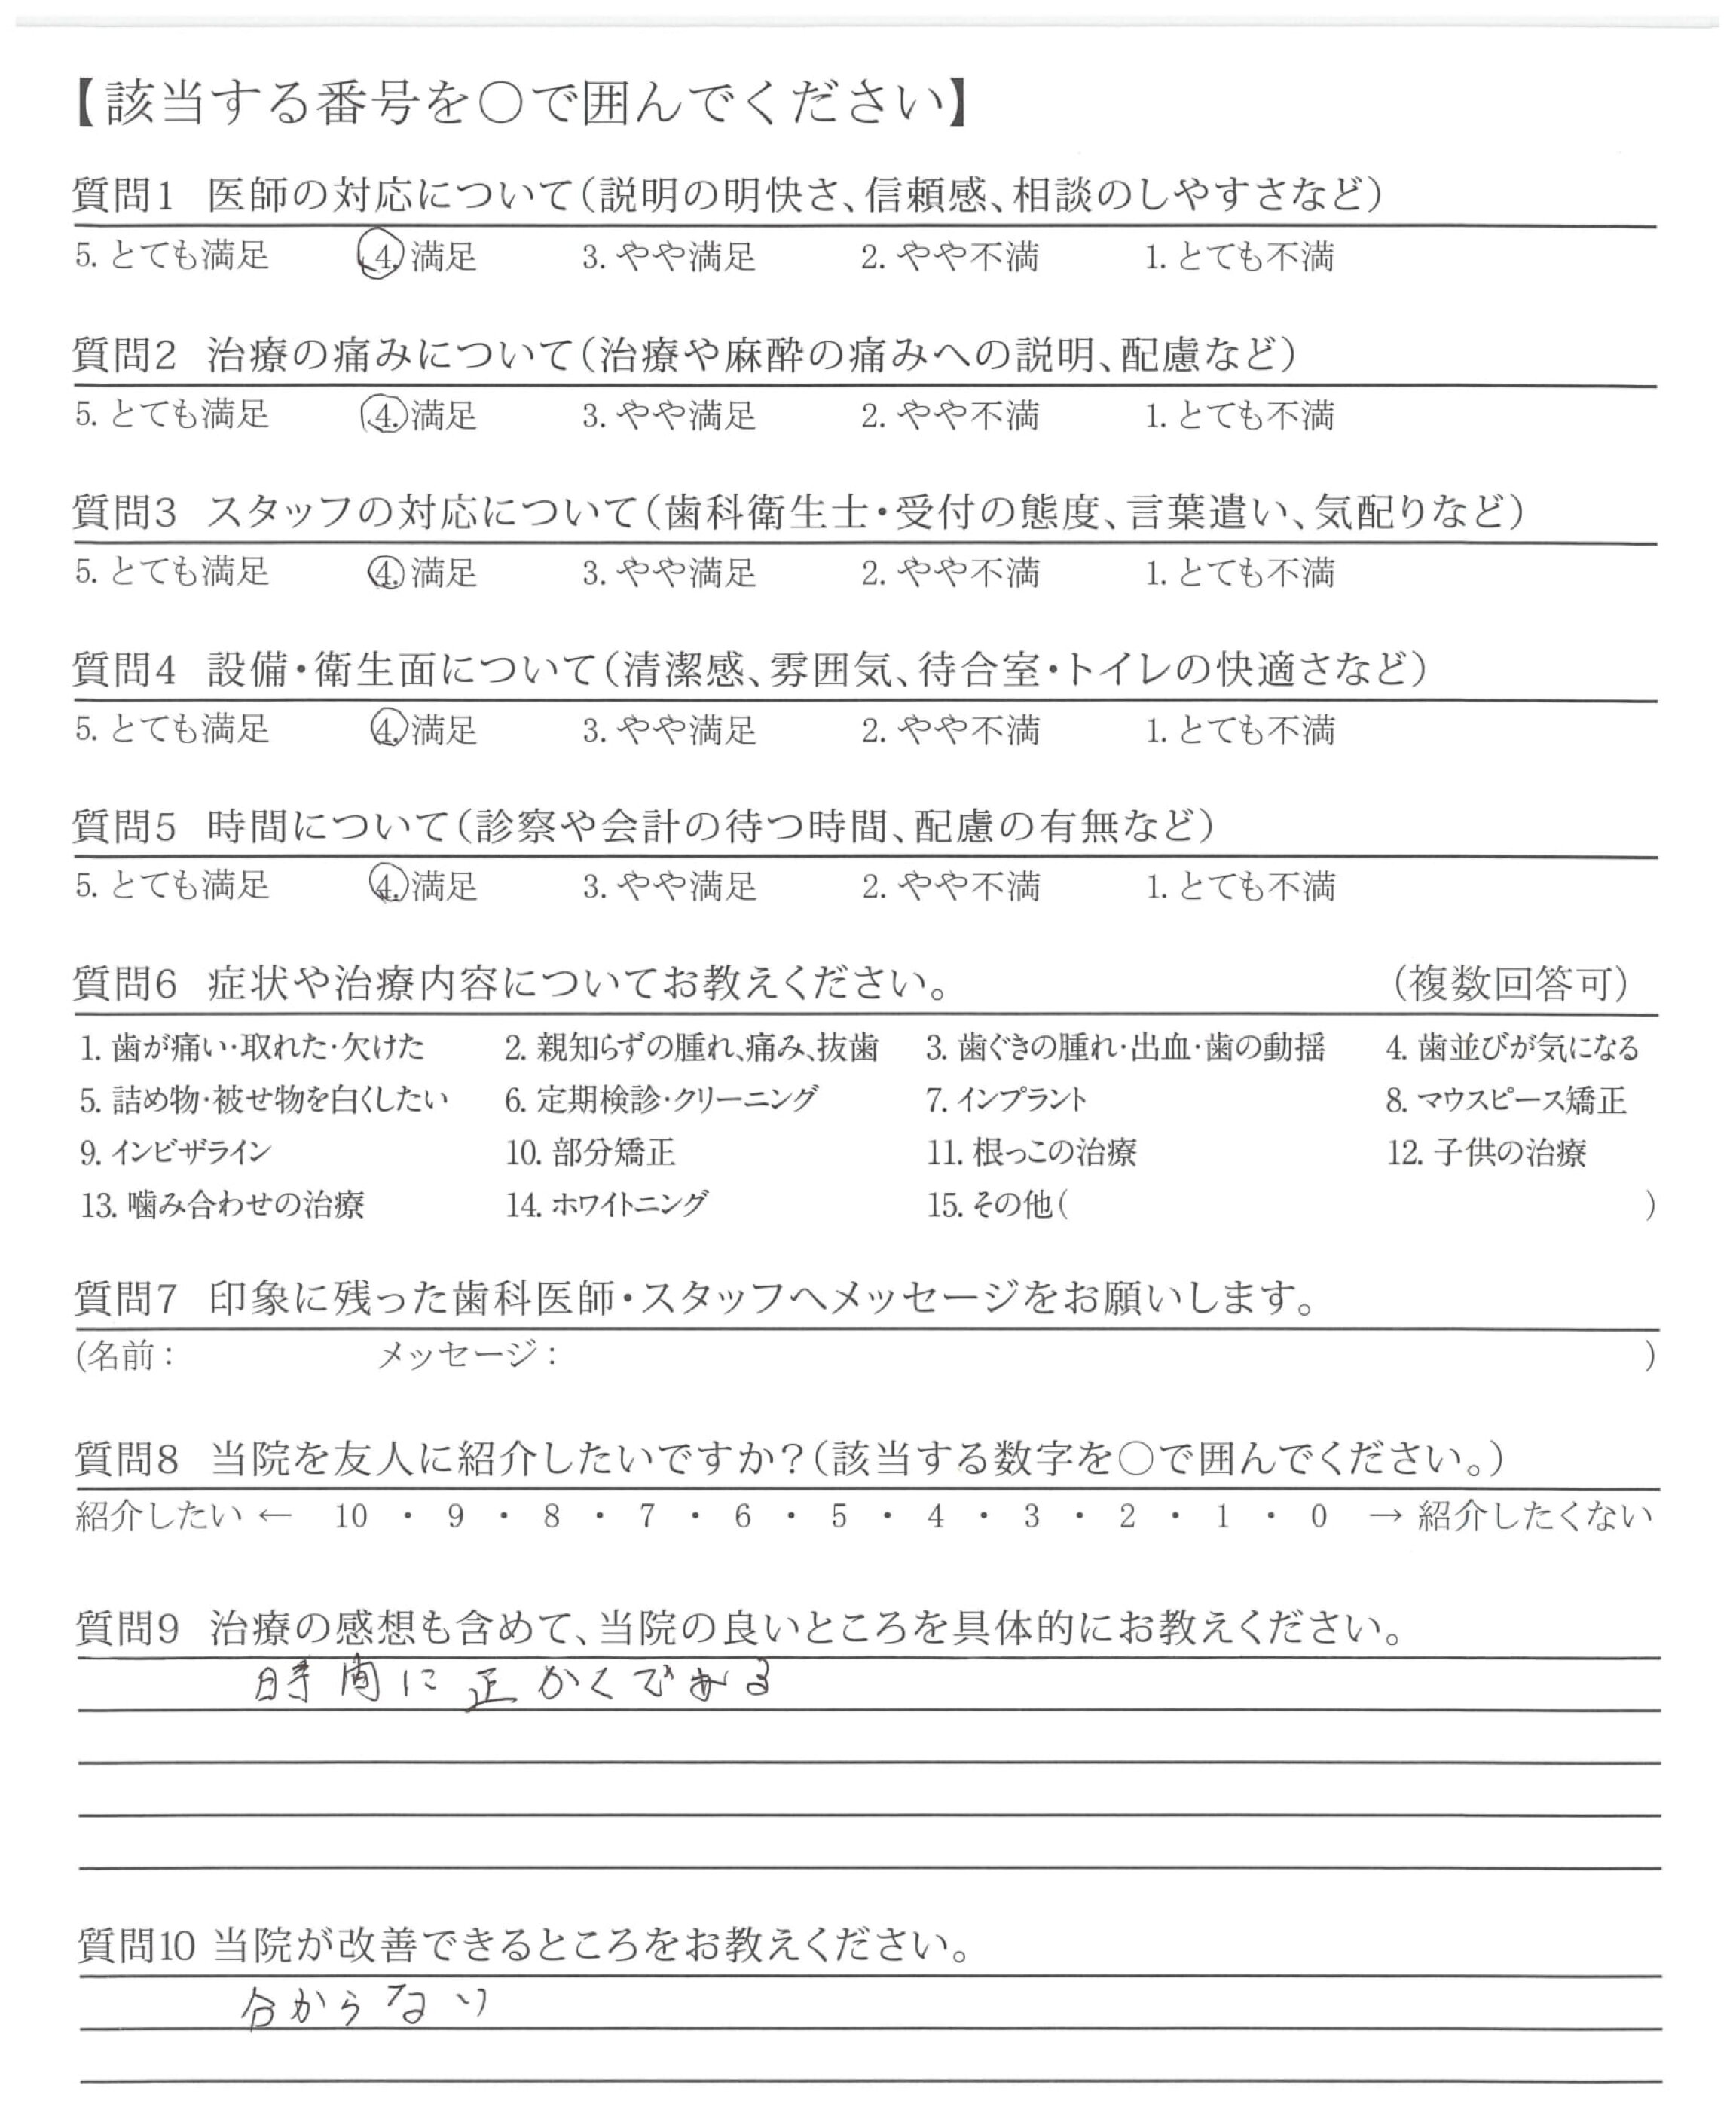 【該当する番号を○で囲んでください】
質問1 医師の対応について(説明の明快さ、信頼感、相談のしやすさなど)
5. とても満足 4. 満足 3. やや満足 2. やや不満 1. とても不満
質問2 治療の痛みについて(治療や麻酔の痛みへの説明、配慮など)
5. とても満足 4. 満足 3. やや満足 2. やや不満 1. とても不満
質問3 スタッフの対応について(歯科衛生士・受付の態度、言葉遣い、気配りなど)
5. とても満足 4. 満足 3. やや満足 2. やや不満 1. とても不満
質問4 設備・衛生面について(清潔感、雰囲気、待合室・トイレの快適さなど)
5. とても満足 4. 満足 3. やや満足 2. やや不満 1. とても不満
質問5 時間について(診察や会計の待つ時間、配慮の有無など)
5. とても満足 4. 満足 3. やや満足 2. やや不満 1. とても不満
質問6 症状や治療内容についてお教えください。 (複数回答可)
1. 歯が痛い・取れた・欠けた 2. 親知らずの腫れ、痛み、抜歯 3. 歯ぐきの腫れ・出血・歯の動揺 4. 歯並びが気になる
5. 詰め物・被せ物を白くしたい 6. 定期検診・クリーニング 7. インプラント 8. マウスピース矯正
9. インビザライン 10. 部分矯正 11. 根っこの治療 12. 子供の治療
13. 噛み合わせの治療 14. ホワイトニング 15. その他( )
質問7 印象に残った歯科医師・スタッフへメッセージをお願いします。
(名前: メッセージ: )
質問8 当院を友人に紹介したいですか?(該当する数字を○で囲んでください。)
紹介したい ← 10 ・ 9 ・ 8 ・ 7 ・ 6 ・ 5 ・ 4 ・ 3 ・ 2 ・ 1 ・ 0 → 紹介したくない
質問9 治療の感想も含めて、当院の良いところを具体的にお教えください。
時間に正かくである
質問10 当院が改善できるところをお教えください。
分からない